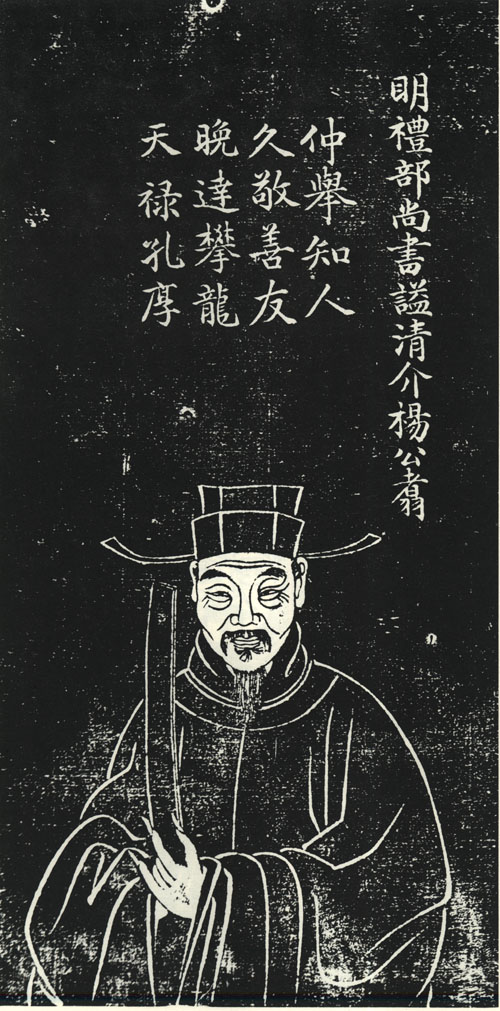 明禮部尚書諡清介楊公翥
仲舉知人
久敬善友
晚達攀龍
天禄孔厚